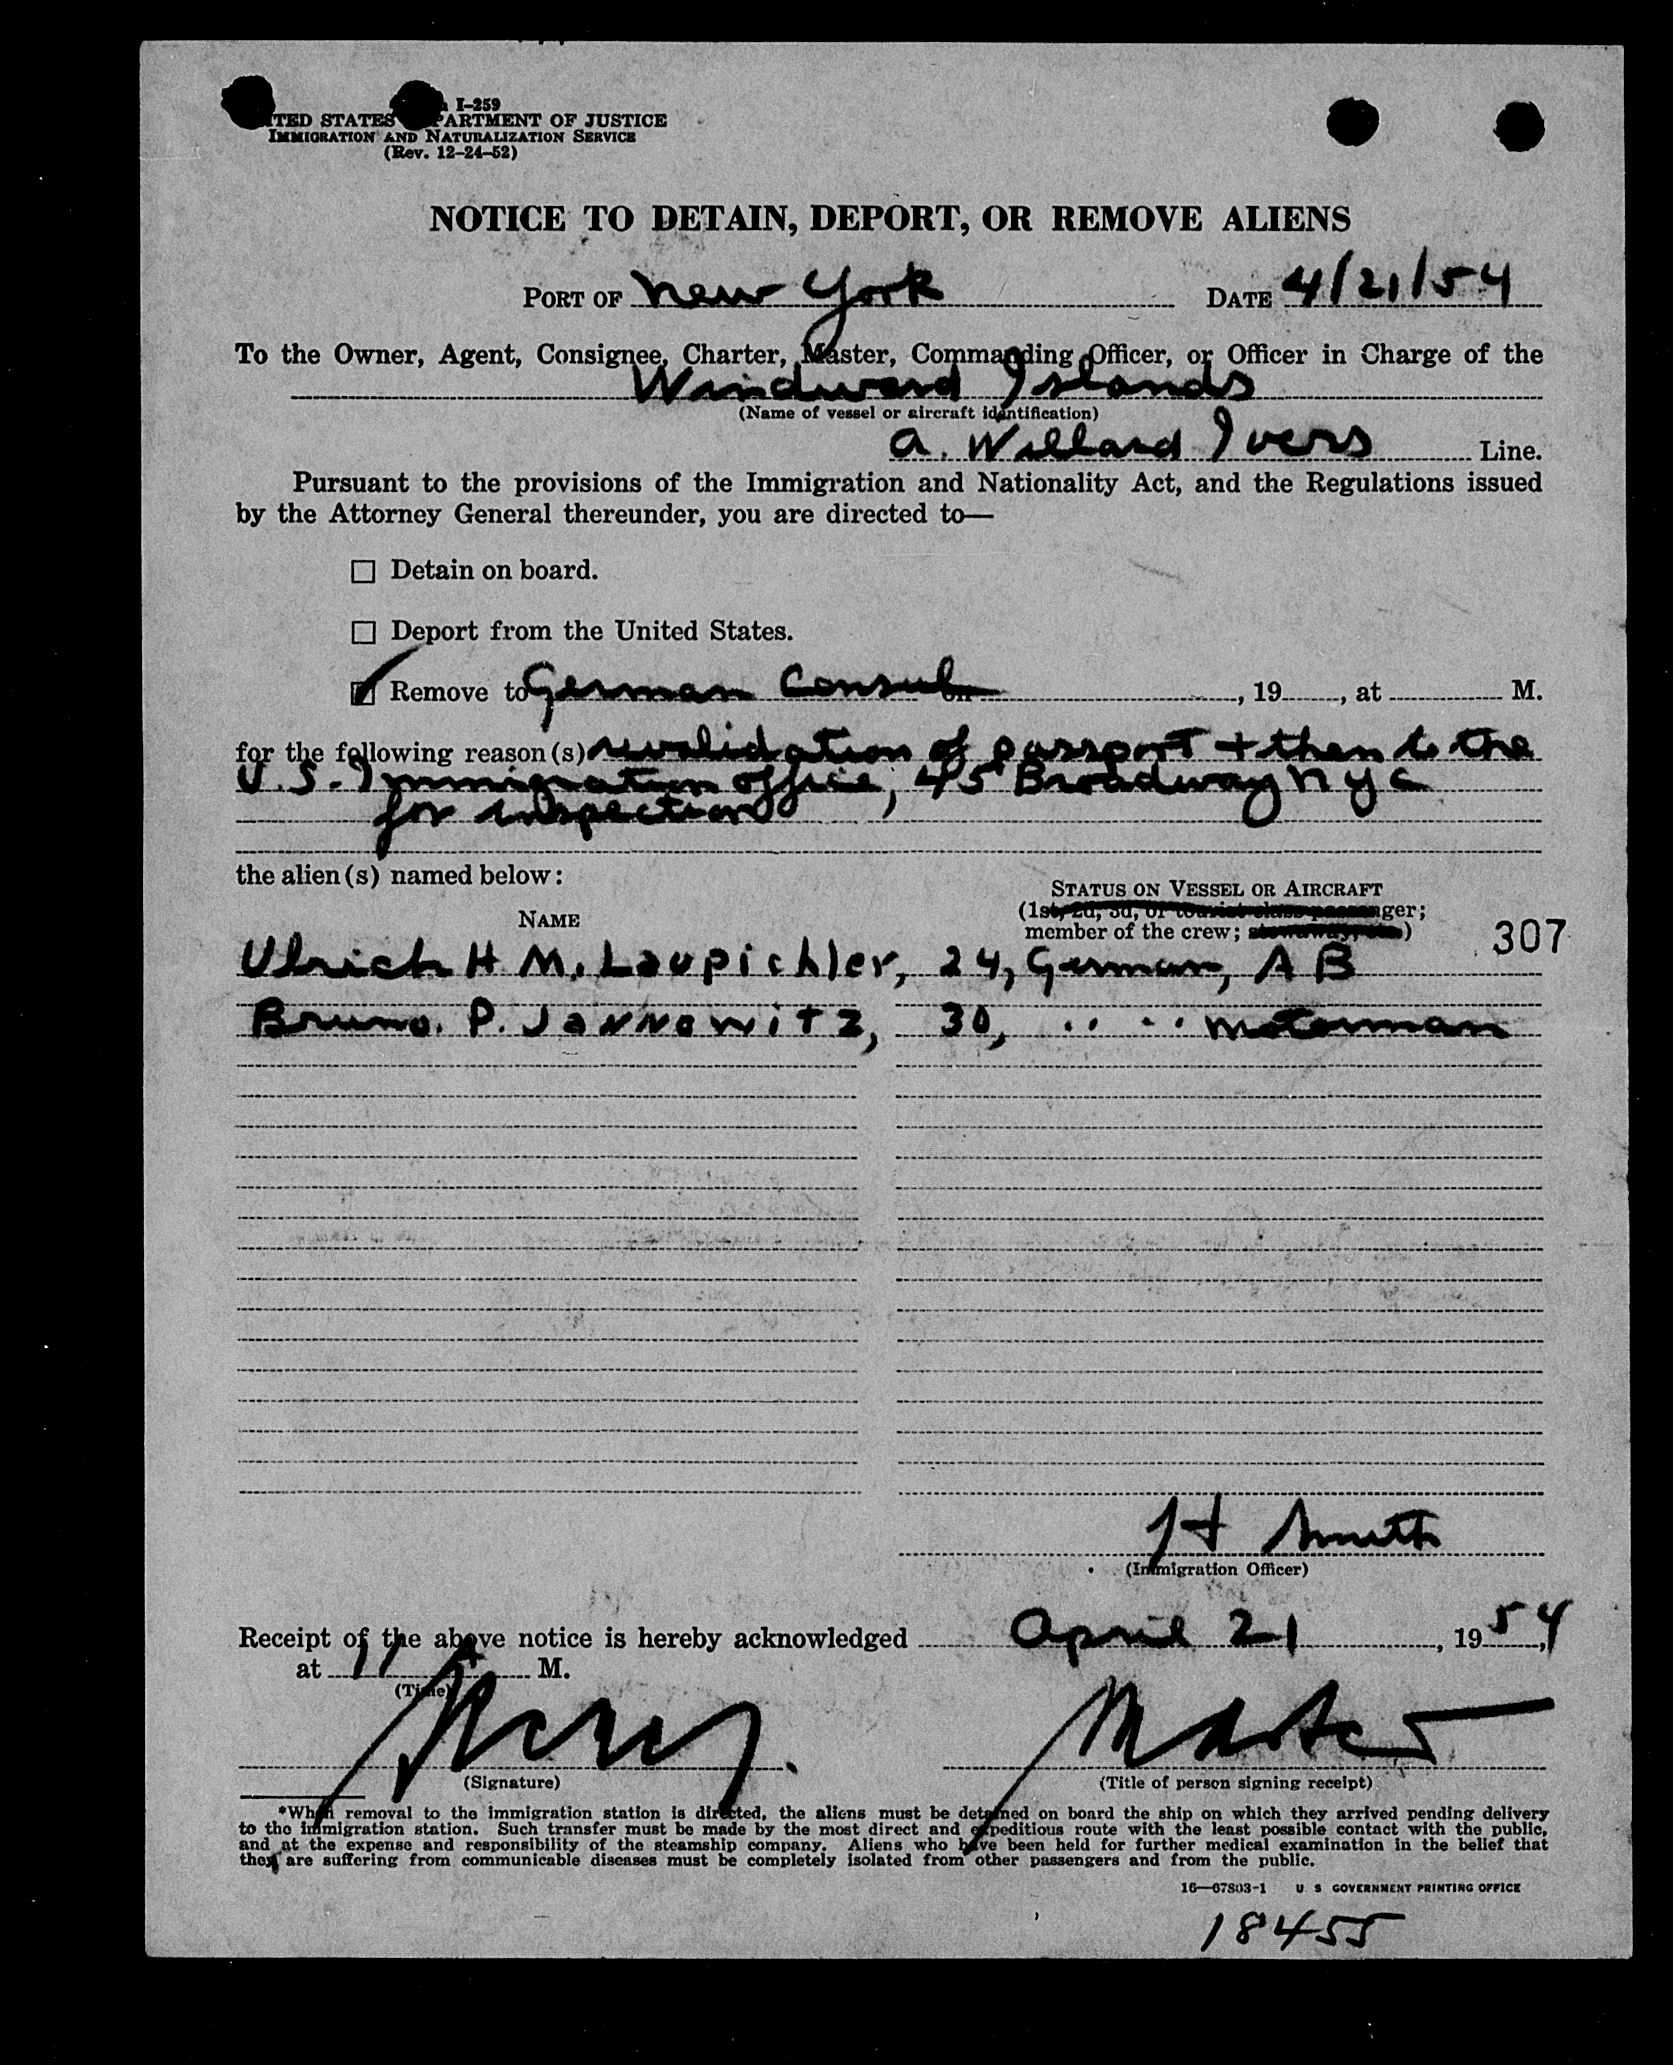 I-259
TED STATES PARTMENT OF JUSTICE
IMMIGRATION AND NATURALIZATION SERVICE
(Rev. 12-24-52)
NOTICE TO DETAIN, DEPORT, OR REMOVE ALIENS
PORT OF New York DATE 4/21/54
To the Owner, Agent, Consignee, Charter, Master, Commanding Officer, or Officer in Charge of the
Windward Islands
(Name of vessel or aircraft identification)
A. Willard Ivers Line.
Pursuant to the provisions of the Immigration and Nationality Act, and the Regulations issued
by the Attorney General thereunder, you are directed to—
☐ Detain on board.
☐ Deport from the United States.
☑ Remove to German Consul on , 19 , at M.
for the following reason(s) revalidation of passport + then to the
U.S. Immigration office, 45 Broadway NYC
for inspection
the alien(s) named below:
NAME
STATUS ON VESSEL OR AIRCRAFT
(1st, 2d, 3d, or tourist class passenger;
member of the crew; stowaway, etc.)
307
Ulrich H M. Laupichler, 24, German, AB
Bruno. P. Jannowitz, 30, " " Motorman
H Smith
(Immigration Officer)
Receipt of the above notice is hereby acknowledged April 21, 1954,
at 11 M.
(Time)
Master
(Signature) (Title of person signing receipt)
*When removal to the immigration station is directed, the aliens must be detained on board the ship on which they arrived pending delivery
to the immigration station. Such transfer must be made by the most direct and expeditious route with the least possible contact with the public,
and at the expense and responsibility of the steamship company. Aliens who have been held for further medical examination in the belief that
they are suffering from communicable diseases must be completely isolated from other passengers and from the public.
16—67803-1 U. S. GOVERNMENT PRINTING OFFICE
18455